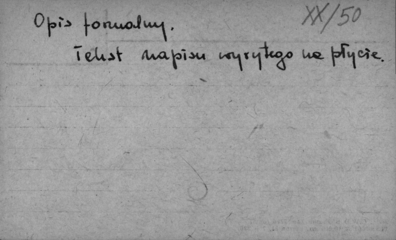 XX/50
Opis formalny.
Tekst napisu wyrytego na płycie.